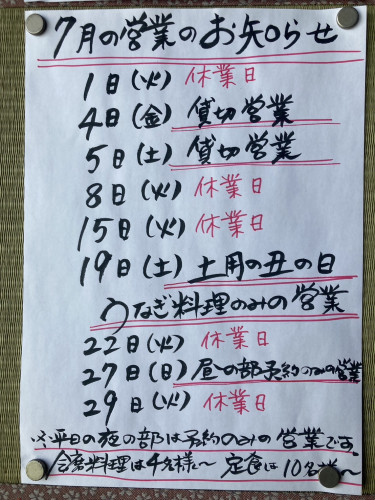 7月の営業のお知らせ
1日(火) 休業日
4日(金) 貸切営業
5日(土) 貸切営業
8日(火) 休業日
15日(火) 休業日
19日(土) 土用の丑の日
うなぎ料理のみの営業
22日(火) 休業日
27日(日) 昼の部予約のみの営業
29日(火) 休業日
※平日の夜の部は予約のみの営業です。
会席料理は4名様〜 定食は10名様〜